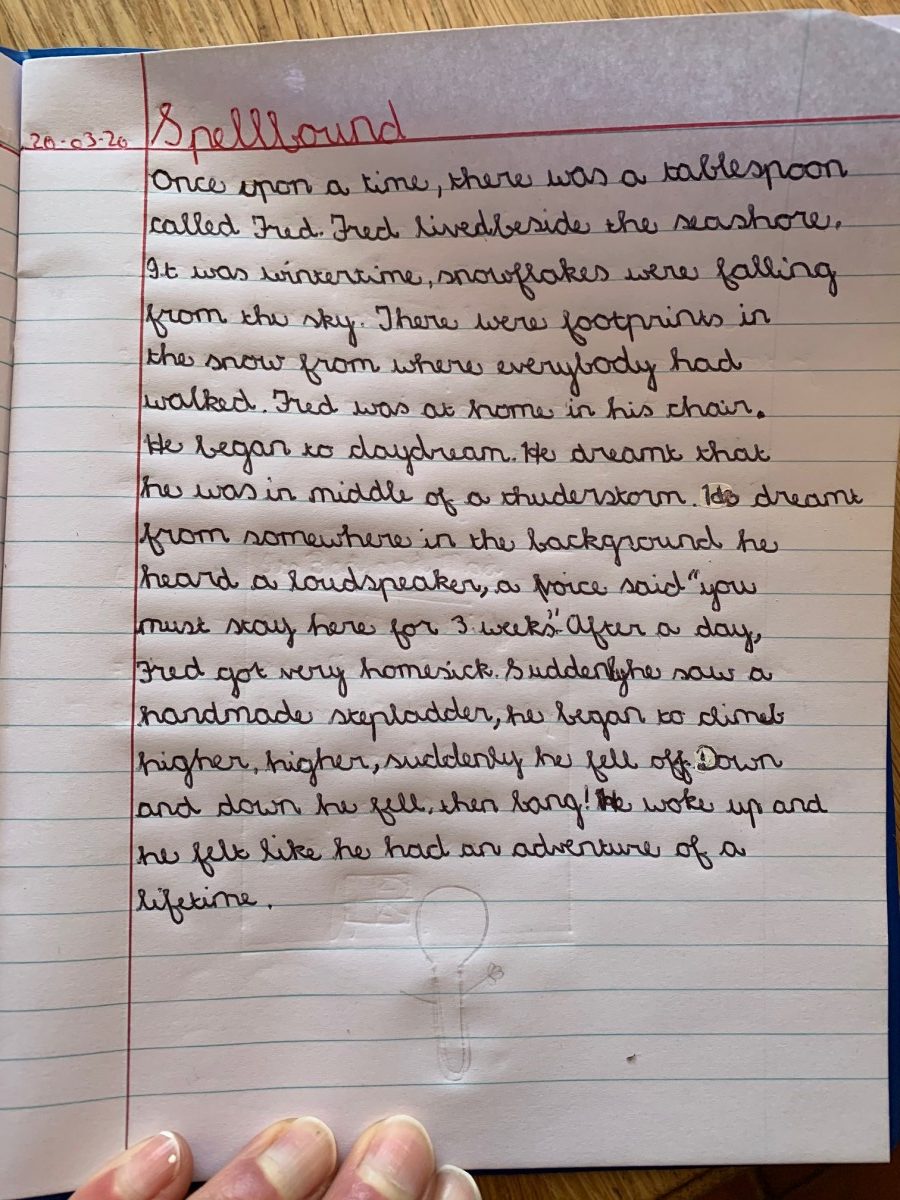 20-03-20
Spellbound
Once upon a time, there was a tablespoon
called Fred. Fred lived beside the seashore.
It was wintertime, snowflakes were falling
from the sky. There were footprints in
the snow from where everybody had
walked. Fred was at home in his chair.
He began to daydream. He dreamt that
he was in middle of a thuderstorm. He dreamt
from somewhere in the background he
heard a loudspeaker, a voice said "you
must stay here for 3 weeks". After a day,
Fred got very homesick. Suddenly he saw a
handmade stepladder, he began to climb
higher, higher, suddenly he fell off. Down
and down he fell, then bang! He woke up and
he felt like he had an adventure of a
lifetime.